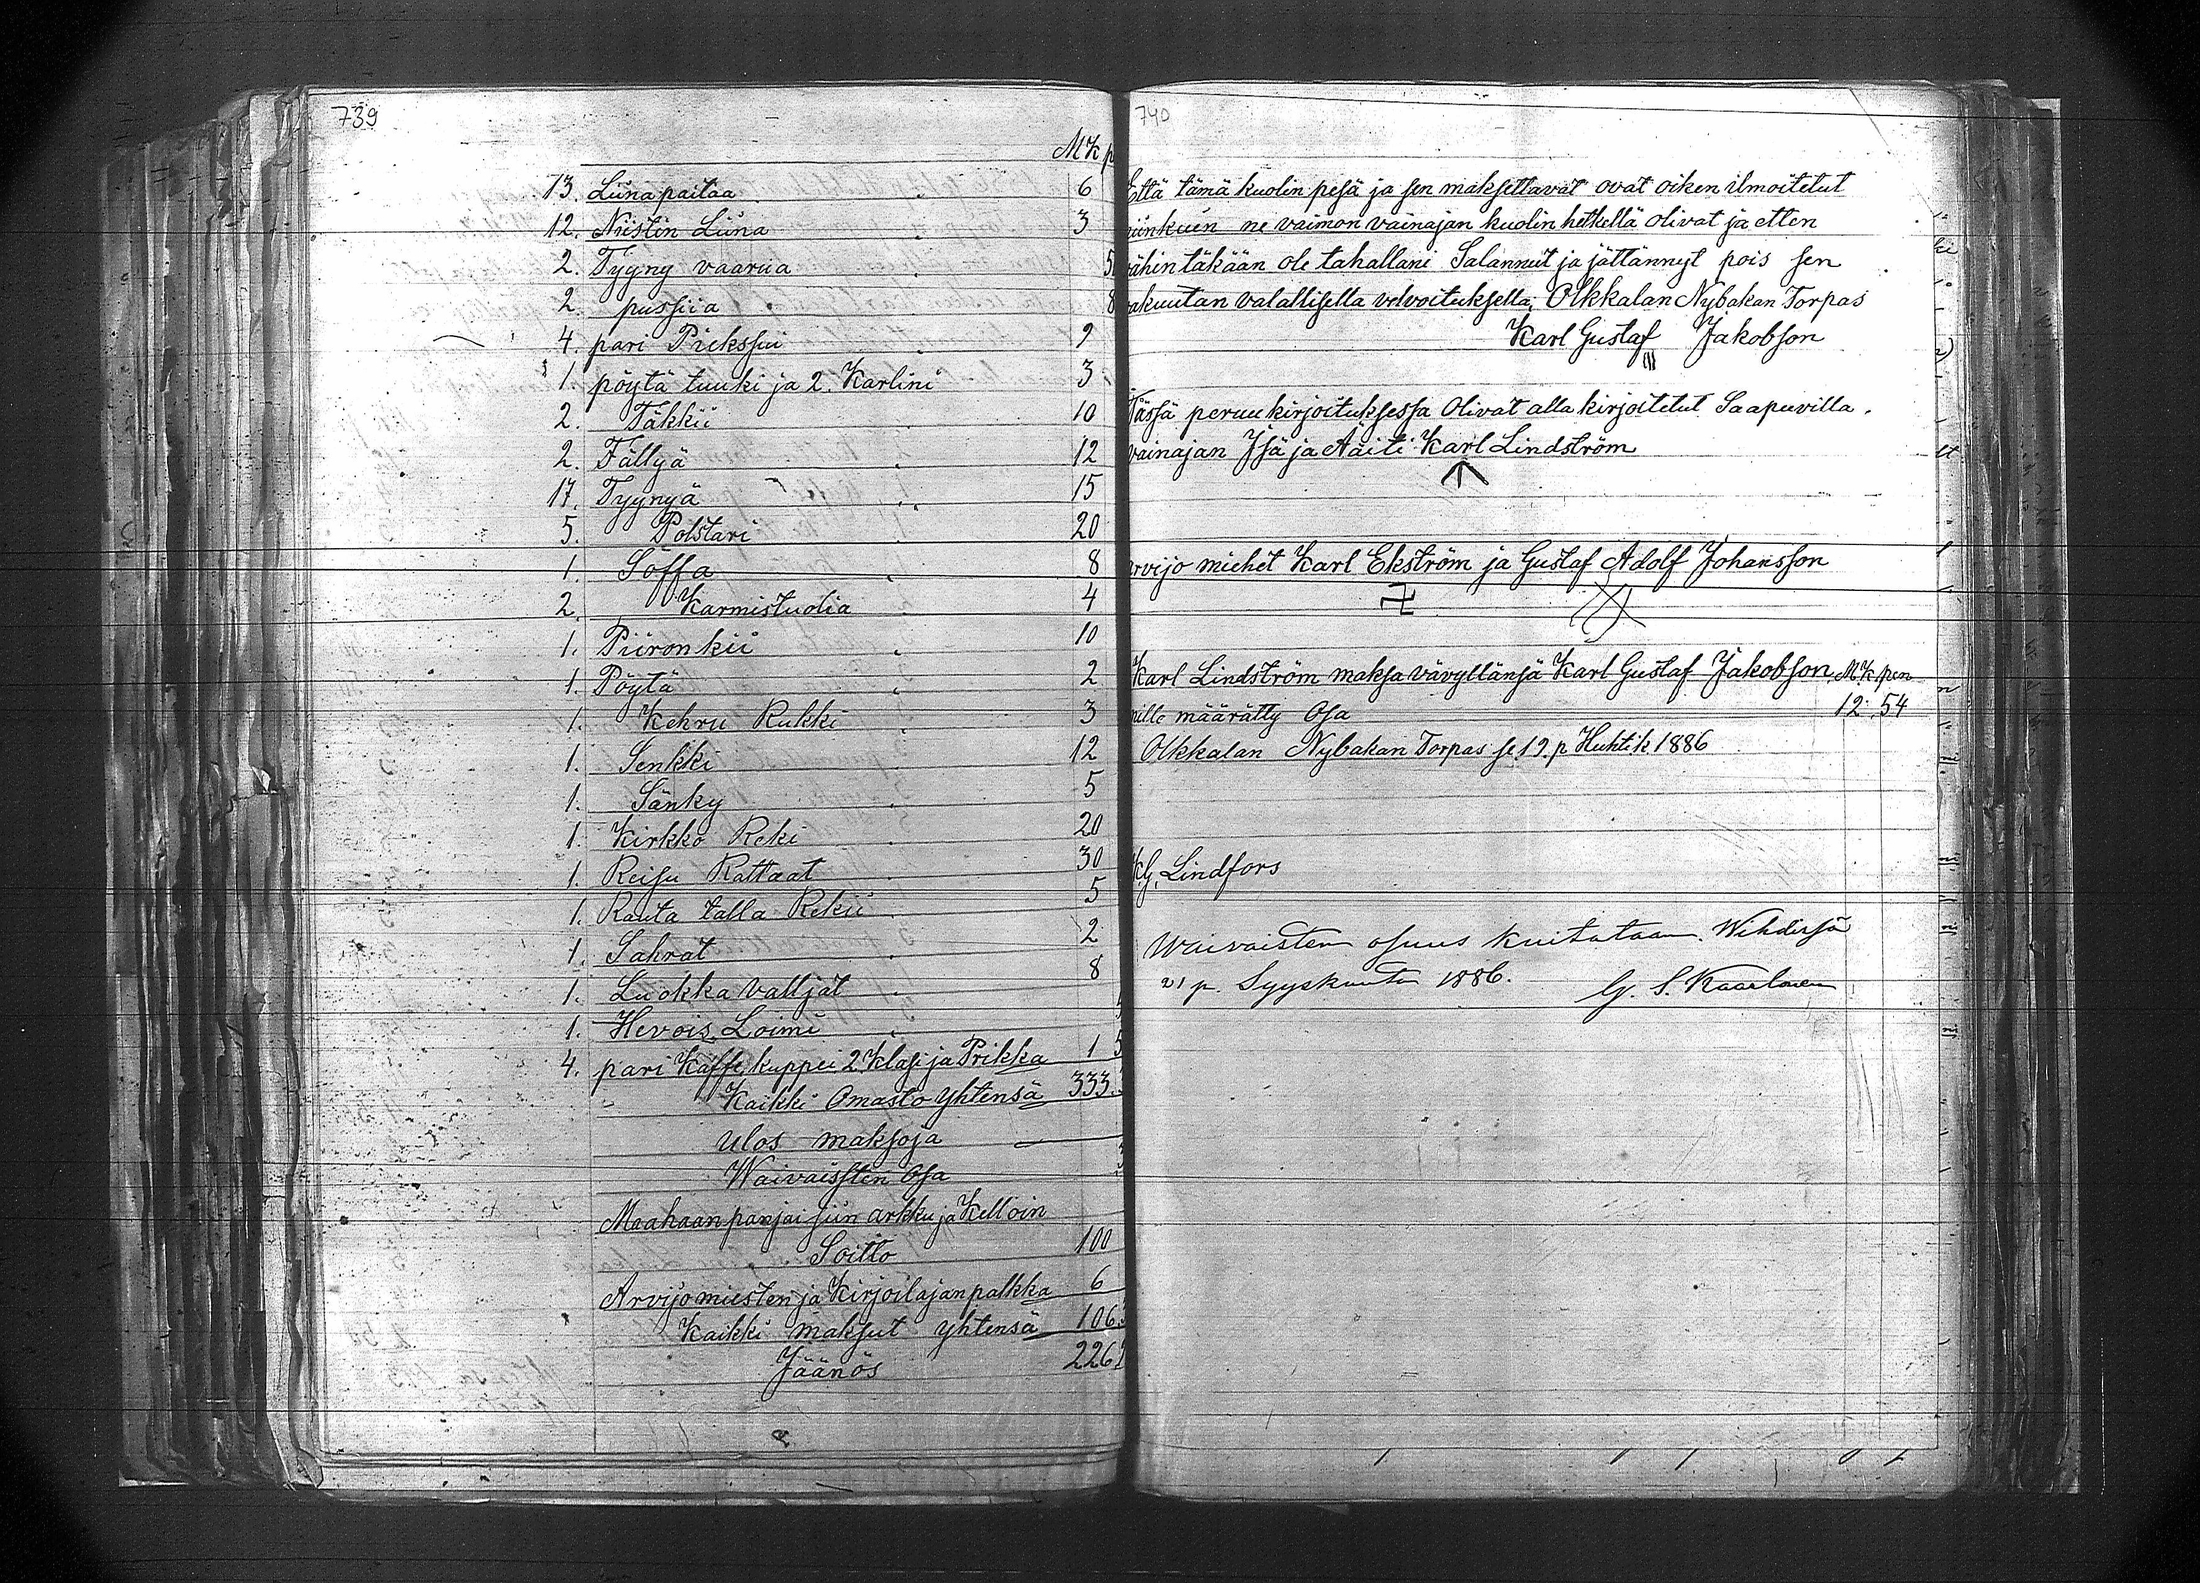 739
Mk p
13. Liinapaitaa 6
12. Niistin Liina 3
2. Tyyny vaarua 5
2. pussiia 8
4. pari Pieksyii 9
1. pöytä tuuki ja 2. Karlini 3
2. Täkkii 10
2. Fällyä 12
17. Tyynyä 15
5. Polstari 20
1. Soffa 8
2. Karmistuolia 4
1. Piironkii 10
1. Pöytä 2
1. Kehru Rukki 3
1. Senkki 12
1. Sänky 5
1. Kirkko Reki 20
1. Reisu Rattaat 30
1. Rauta talla Rekii 5
1. Sahrat 2
1. Luokka valljat 8
1. Hevois Loimi
4. pari Kaffe kuppei 2 Klasi ja Prikka 1 5
Kaikki Omasto yhtensä 333.
Ulos maksoja
Waivaisten Osa
Maahaan panjai siin arkku ja Kelloin
Soitto 100
Arvijo miesten ja Kirjoitajan palkka 6
Kaikki maksut yhtensä 106.
Jäänös 226
740
Että tämä kuolin pesä ja sen maksettavat ovat oiken ilmoitetut
niinkuin ne vaimon vainajan kuolin hetkellä olivat ja etten
vähin täkään ole tahallani Salannut ja jättännyt pois sen
vakuutan valallisella velvoituksella, Olkkalan Nybakan Torpas
Karl Gustaf Jakobson
Tässä peruukirjoituksessa Olivat alla kirjoitetut Saapuvilla.
vainajan Isä ja Äiti Karl Lindström
arvijo miehet Karl Ekström ja Gustaf Adolf Johansson
Karl Lindström maksa vävyllänsä Karl Gustaf Jakobson Mk pen
mille määrätty Osa 12. 54
Olkkalan Nybakan Torpas se 19. p Huhtik 1886
K.G. Lindfors
Waivaisten osuus kuitataan. Wihdissä
21 p. Syyskuuta 1886. G. S. Kaarlonen